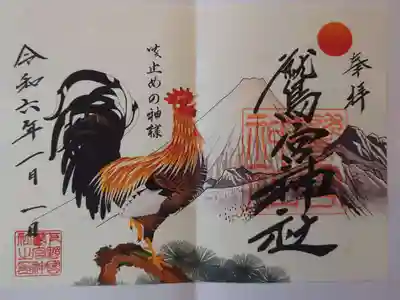 奉拝
鷲宮神社
咳止めの神様
令和六年一月一日